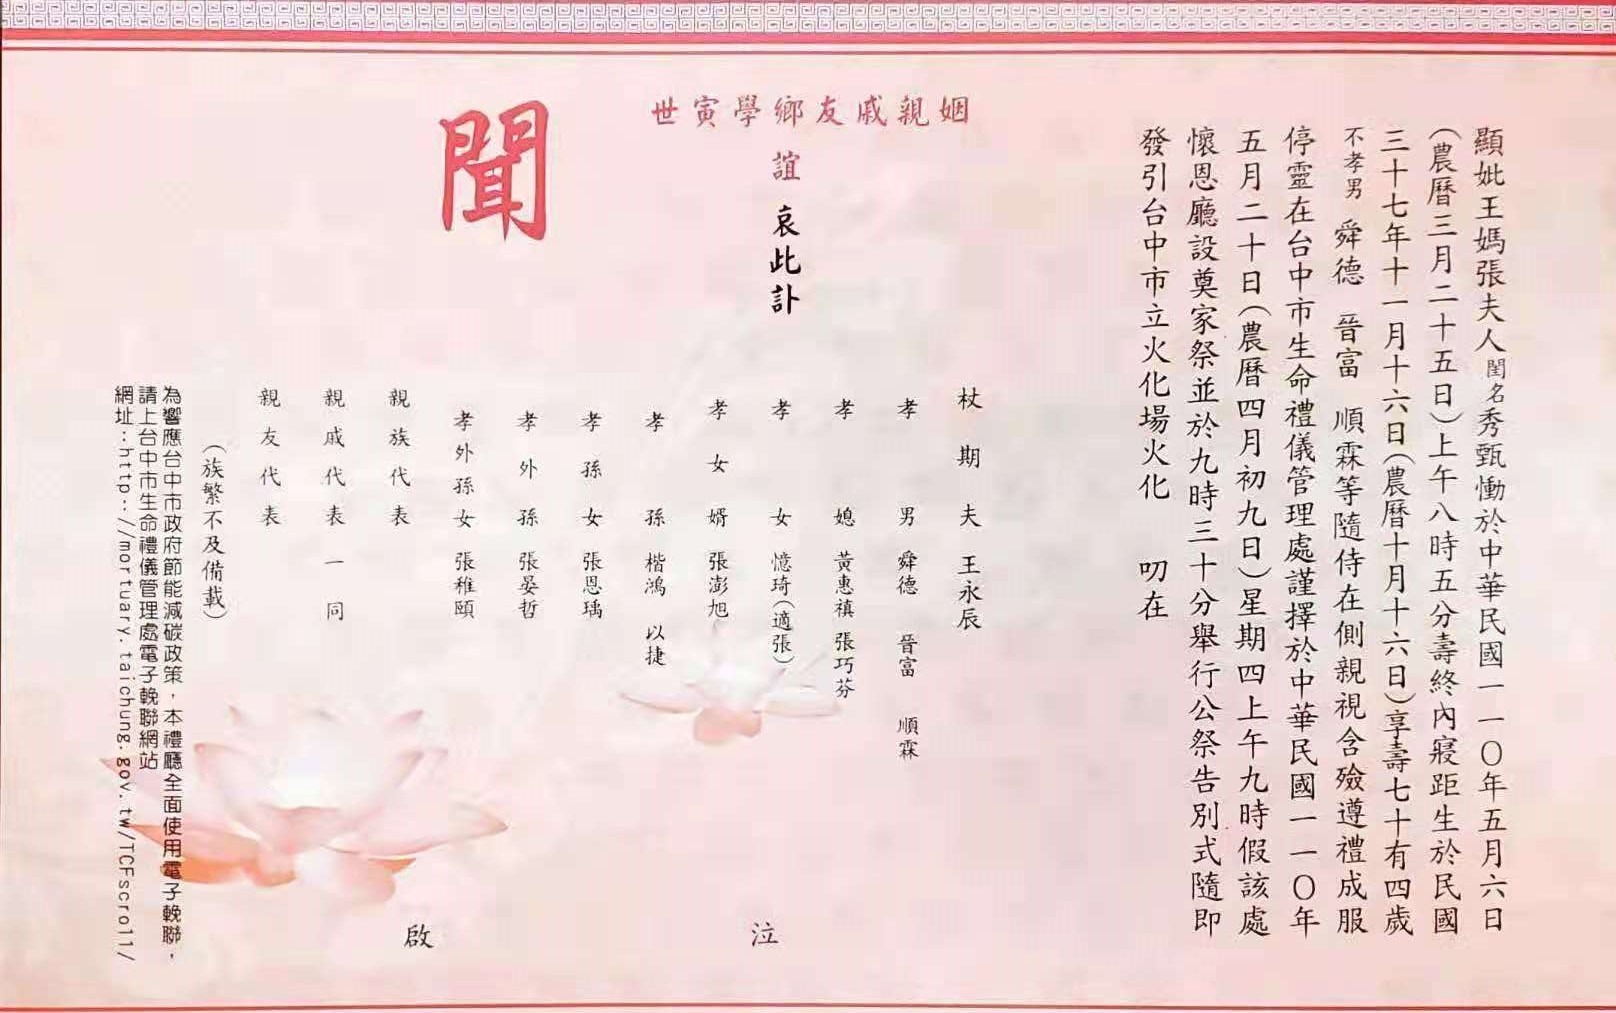 顯妣王媽張夫人閨名秀甄慟於中華民國一一〇年五月六日
(農曆三月二十五日)上午八時五分壽終內寢距生於民國
三十七年十一月十六日(農曆十月十六日)享壽七十有四歲
不孝男 舜德 晉富 順霖等隨侍在側親視含殮遵禮成服
停靈在台中市生命禮儀管理處謹擇於中華民國一一〇年
五月二十日(農曆四月初九日)星期四上午九時假該處
懷恩廳設奠家祭並於九時三十分舉行公祭告別式隨即
發引台中市立火化場火化 叨在
姻親戚友鄉學寅世
誼 哀此訃
聞
杖期夫 王永辰
孝男 舜德 晉富 順霖
孝媳 黃惠禛 張巧芬
孝女 憶琦(適張)
孝女婿 張澎旭
孝孫 楷鴻 以捷
孝孫女 張恩瑀
孝外孫 張晏哲
孝外孫女 張稚頤
親族代表
親戚代表 一同
親友代表
泣
啟
(族繁不及備載)
為響應台中市政府節能減碳政策,本禮廳全面使用電子輓聯,
請上台中市生命禮儀管理處電子輓聯網站
網址:http://mortuary.taichung.gov.tw/TCFscroll/